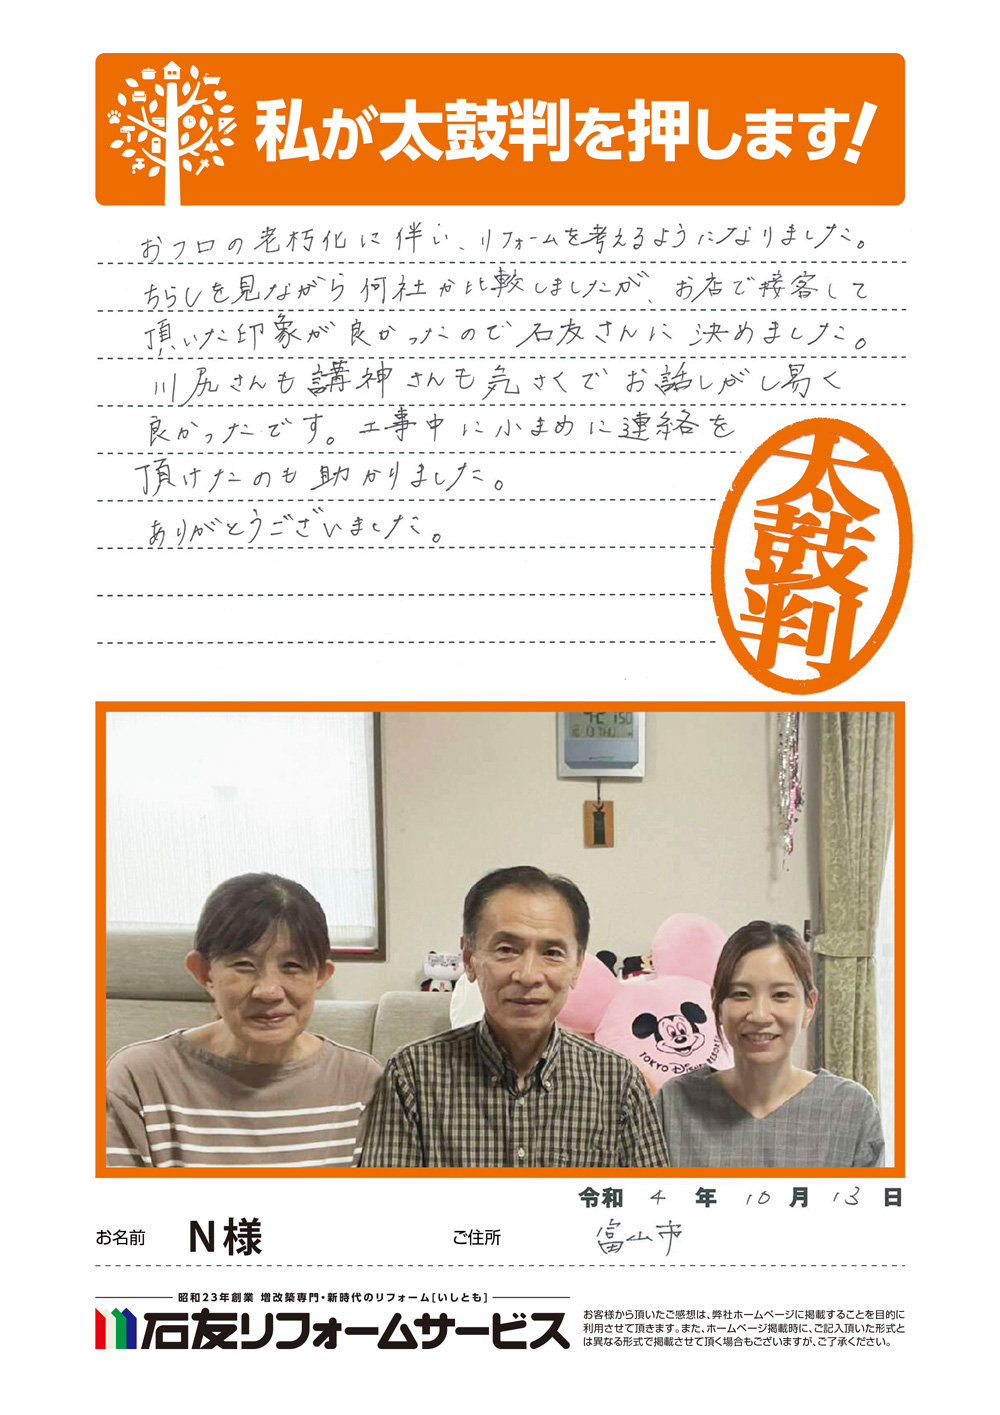 私が太鼓判を押します!
おフロの老朽化に伴い、リフォームを考えるようになりました。
ちらしを見ながら何社か比較しましたが、お店で接客して
頂いた印象が良かったので石友さんに決めました。
川尻さんも講神さんも気さくでお話しがし易く
良かったです。工事中に小まめに連絡を
頂けたのも助かりました。
ありがとうございました。
太鼓判
13 THU
TOKYO Disney RESORT
令和 4 年 10 月 13 日
お名前 N様 ご住所 富山市
昭和23年創業 増改築専門・新時代のリフォーム[いしとも]
石友リフォームサービス
お客様から頂いたご感想は、弊社ホームページに掲載することを目的に
利用させて頂きます。また、ホームページ掲載時に、ご記入頂いた形式と
は異なる形式で掲載させて頂く場合もございますが、ご了承ください。